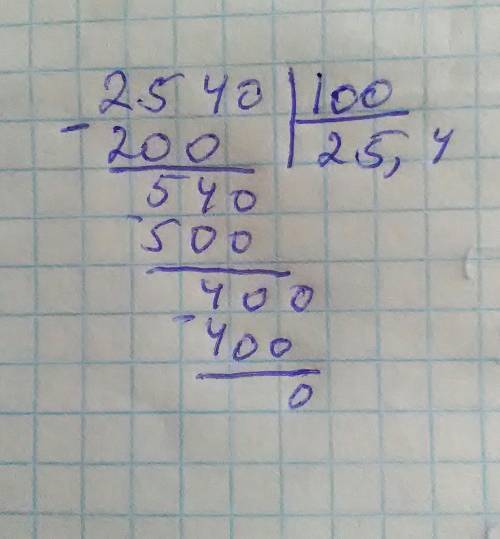 2540 100
- 200 25,4
540
- 500
400
- 400
0